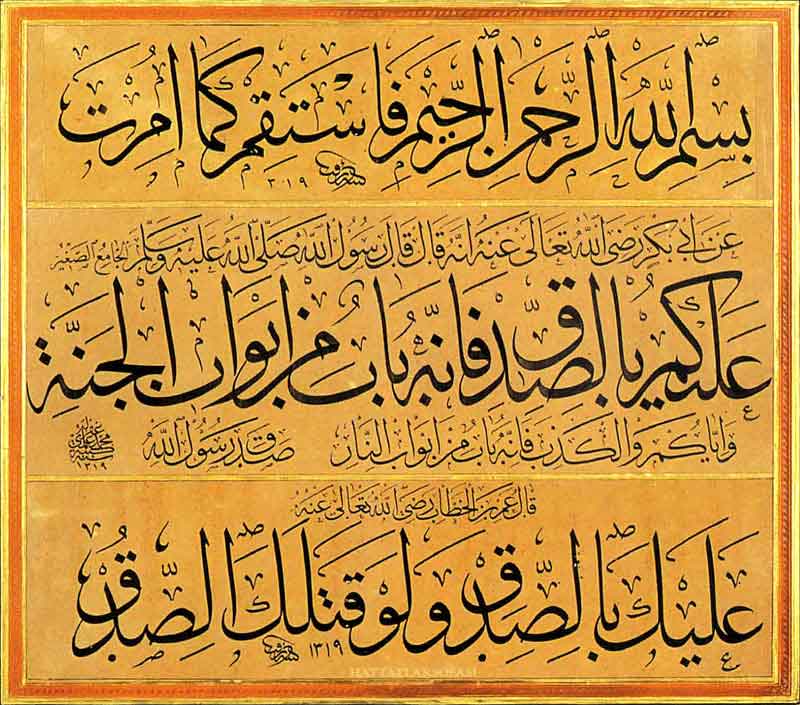 بسم الله الرحمن الرحيم فاستقم كما امرت
١٣١٩
عن ابى بكر رضى الله تعالى عنه انه قال قال رسول الله صلى الله عليه وسلم الجامع الصغير
عليكم بالصدق فانه باب من ابواب الجنة
واياكم والكذب فانه باب من ابواب النار صدق رسول الله
١٣١٩
قال عمر بن الخطاب رضى الله تعالى عنه
عليك بالصدق ولو قتلك الصدق
١٣١٩